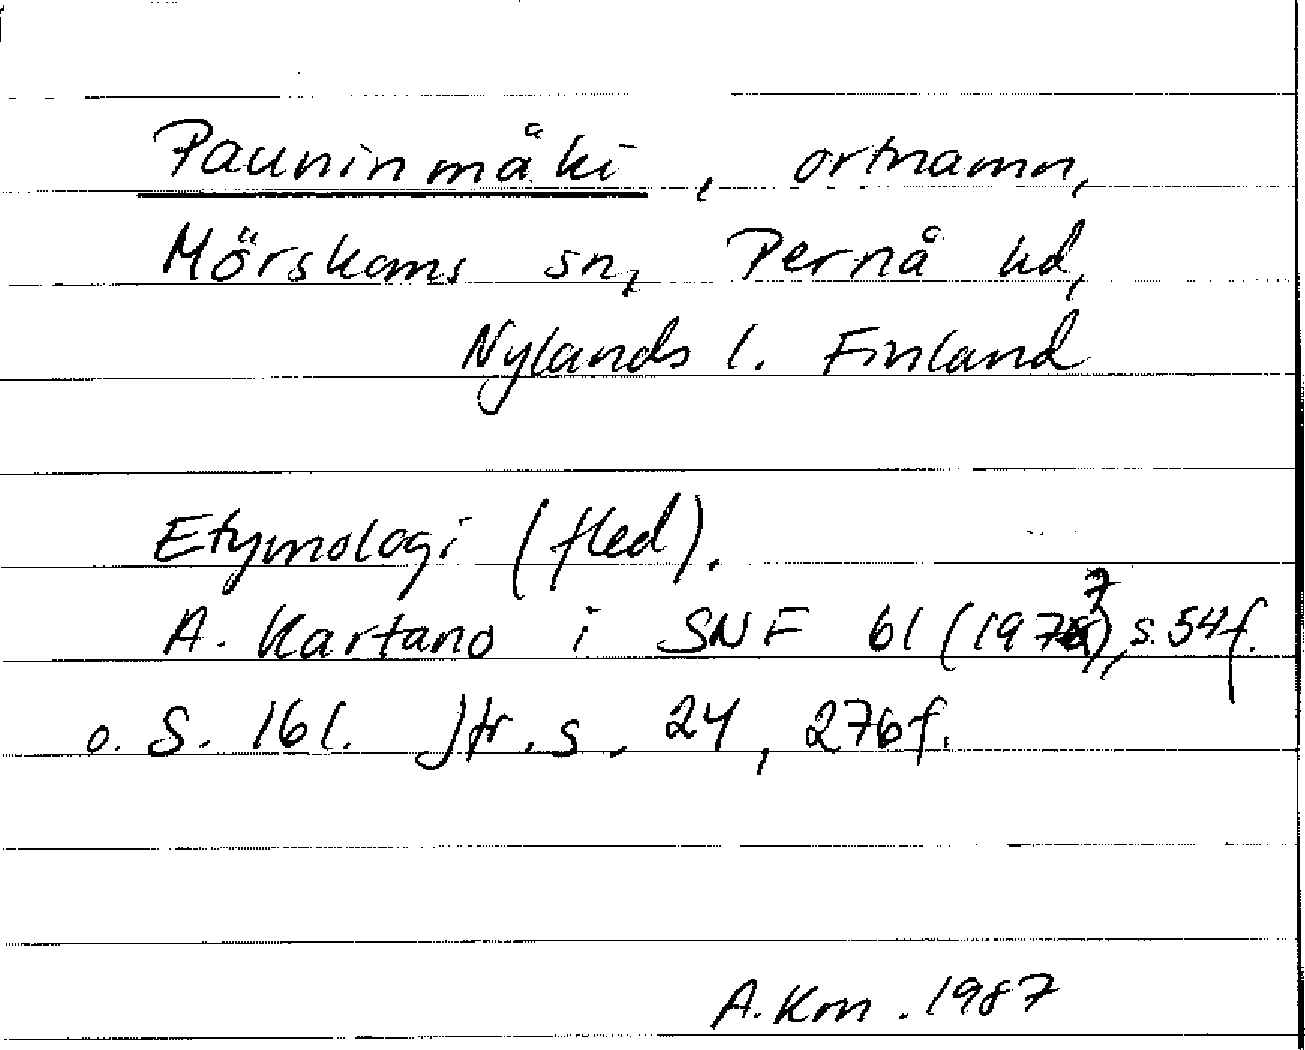 Pauninmåki, ortnamn,
Mörskoms sn, Pernå hd,
Nylands l. Finland
Etymologi (fled).
A. Kartano i SNF 61 (1977), s. 54f.
o. S. 161. Jfr. s. 24, 276f.
A. Km. 1987